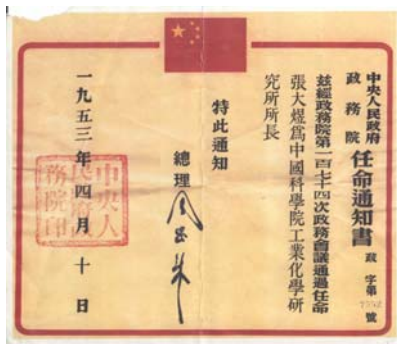 中央人民政府
政務院
任命通知書
政字第7752號
茲經政務院第一百七十四次政務會議通過任命
張大煜爲中國科學院工業化學研
究所所長
特此通知
總理
周恩來
一九五三年四月十日
中央人
民政府政
務院印